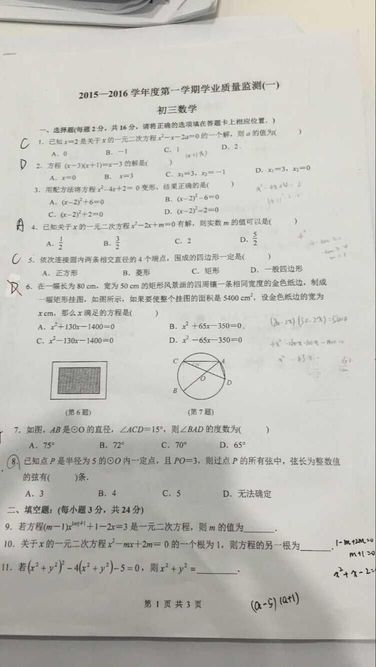 2015—2016 学年度第一学期学业质量监测(一)
初三数学
一、选择题(每题 2 分，共 16 分，请将正确的选项填在答题卡上相应位置．)
C 1．已知 x=2 是关于 x 的一元二次方程 x²－x－2a=0 的一个解，则 a 的值为( )
A．0 B．－1 C．1 D．2
D 2．方程 (x－3)(x＋1)=x－3 的解是( )
A．x=0 B．x=3 C．x₁=3，x₂=－1 D．x₁=3，x₂=0
3．用配方法将方程 x²－4x＋2= 0 变形，结果正确的是( )
A．(x－2)²＋6=0 B．(x－2)²－6=0
C．(x－2)²＋2=0 D．(x－2)²－2=0
A 4．已知关于 x 的一元二次方程 x²－2x＋m=0 有解，则实数 m 的值可以是( )
A．1/2 B．3/2 C．2 D．5/2
C 5．依次连接圆内两条相交直径的 4 个端点，围成的四边形一定是( )
A．正方形 B．菱形 C．矩形 D．一般四边形
6．在一幅长为 80 cm，宽为 50 cm 的矩形风景画的四周镶一条相同宽度的金色纸边，制成
一幅矩形挂图，如图所示，如果要使整个挂图的面积是 5400 cm²，设金色纸边的宽为
x cm，那么 x 满足的方程是( )
A．x²＋130x－1400=0 B．x²＋65x－350=0
C．x²－130x－1400=0 D．x²－65x－350=0
C A
B O D
(第 6 题) (第 7 题)
7．如图，AB 是⊙O 的直径，∠ACD=15°，则∠BAD 的度数为( )
A．75° B．72° C．70° D．65°
8．已知点 P 是半径为 5 的⊙O 内一定点，且 PO=3，则过点 P 的所有弦中，弦长为整数值
的弦有( )条．
A．3 B．4 C．5 D．无法确定
二、填空题：(每小题 3 分，共 24 分)
9．若方程(m－1)x^|m|+1＋1－2x=3 是一元二次方程，则 m 的值为
10．关于 x 的一元二次方程 x²－mx＋2m= 0 的一个根为 1，则方程的另一根为
1-m+2m=0
m+1=0
11．若(x²＋y²)²－4(x²＋y²)－5=0，则 x²＋y²=
x²+x-2=0
(a-5)(a+1)
第 1 页 共 3 页